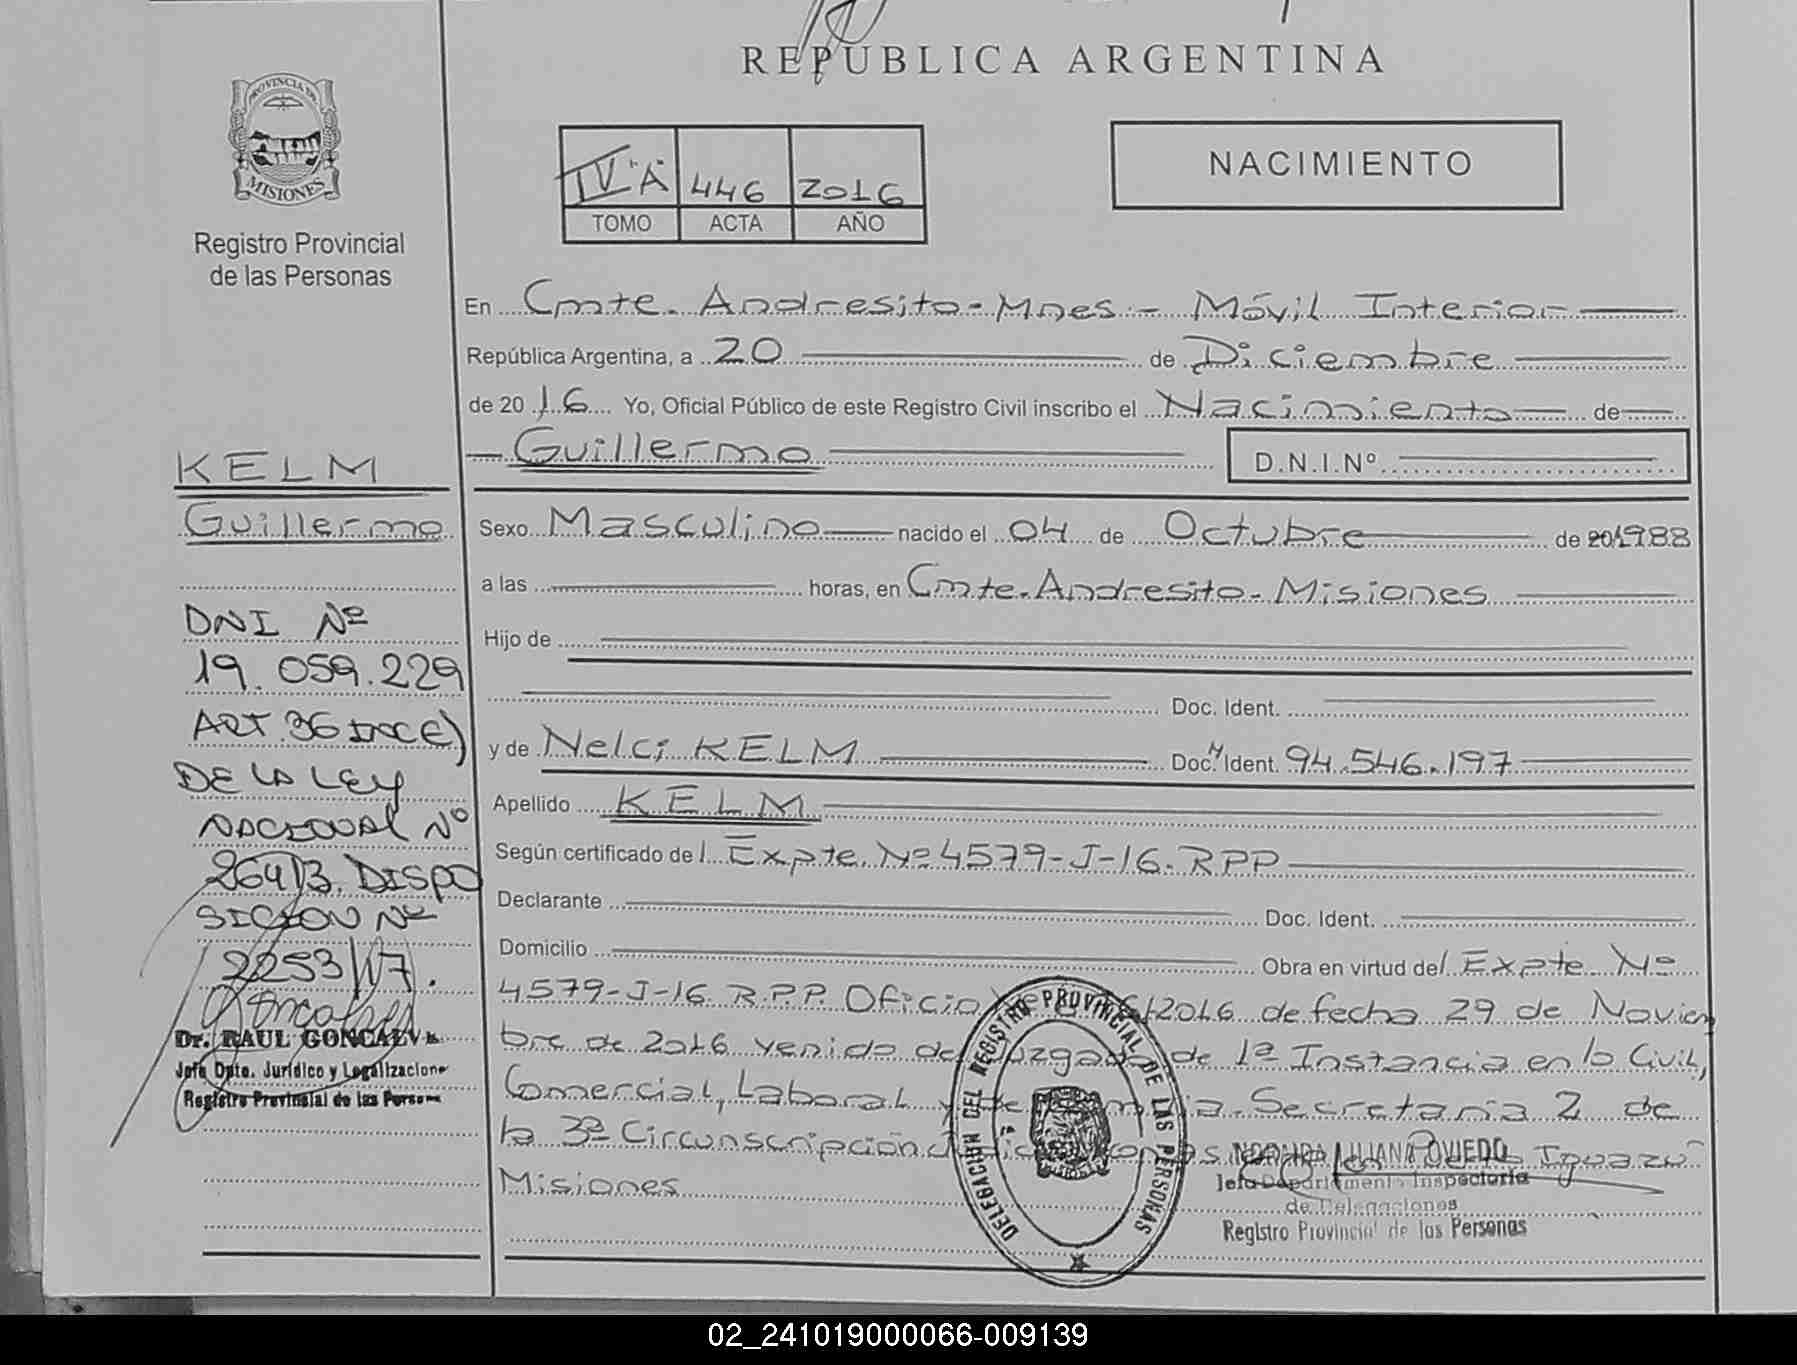 REPUBLICA ARGENTINA
PROVINCIA DE
MISIONES
Registro Provincial
de las Personas
IV "A" 446 2016
TOMO ACTA AÑO
NACIMIENTO
En Cmte. Andresito - Mnes. - Móvil Interior
República Argentina, a 20 de Diciembre
de 20 16 Yo, Oficial Público de este Registro Civil inscribo el Nacimiento de
Guillermo D.N.I.Nº
Sexo Masculino nacido el 04 de Octubre de 201988
a las horas, en Cmte. Andresito - Misiones
Hijo de
Doc. Ident.
y de Nelci KELM Doc. Ident. 94.546.197
Apellido KELM
Según certificado del Expte. Nº 4579-J-16-RPP
Declarante Doc. Ident.
Domicilio Obra en virtud del Expte. Nº
4579-J-16 R.P.P. Oficio 2016 de fecha 29 de Noviem
bre de 2016 venido del Juzgado de 1ª Instancia en lo Civil,
Comercial, Laboral y de Familia. Secretaría 2 de
la 3ª Circunscripción Iguazú
Misiones
KELM
Guillermo
DNI Nº
19.059.229
ART. 36 INC C)
DE LA LEY
NACIONAL Nº
26413. DISPO
SICION Nº
2253/17.
Dr. RAUL GONCALVES
Jefe Dpto. Jurídico y Legalizacione
Registro Provincial de las Persona
DELEGACION DEL REGISTRO PROVINCIAL DE LAS PERSONAS
NORMA LILIANA OVIEDO
Jefa Departamento Inspectoría
de Delegaciones
Registro Provincial de las Personas
02_241019000066-009139